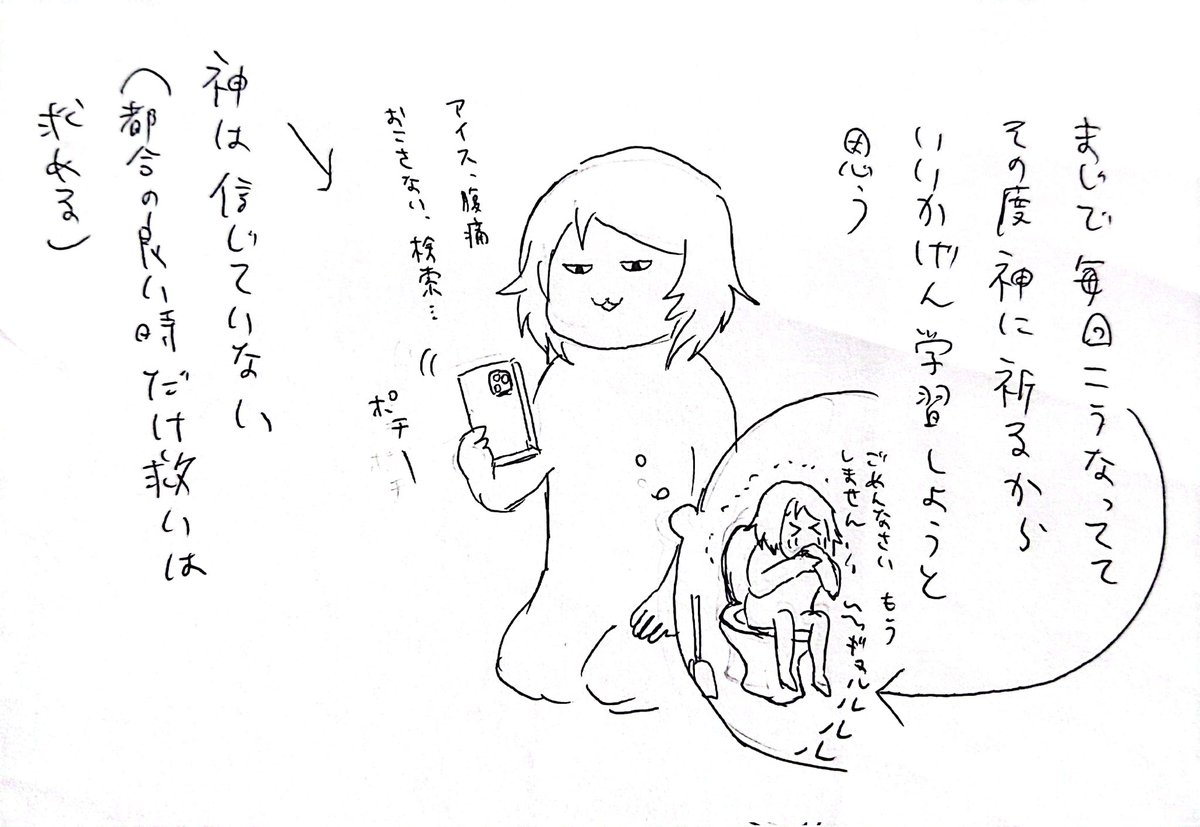 まじで毎回こうなってて
その度神に祈るから
いいかげん学習しようと
思う
ごめんなさい もう
しません
ギュルルルルル
アイス、腹痛
おこさない、検索…
ポチー
神は信じていない
(都合の良い時だけ救いは
求める)